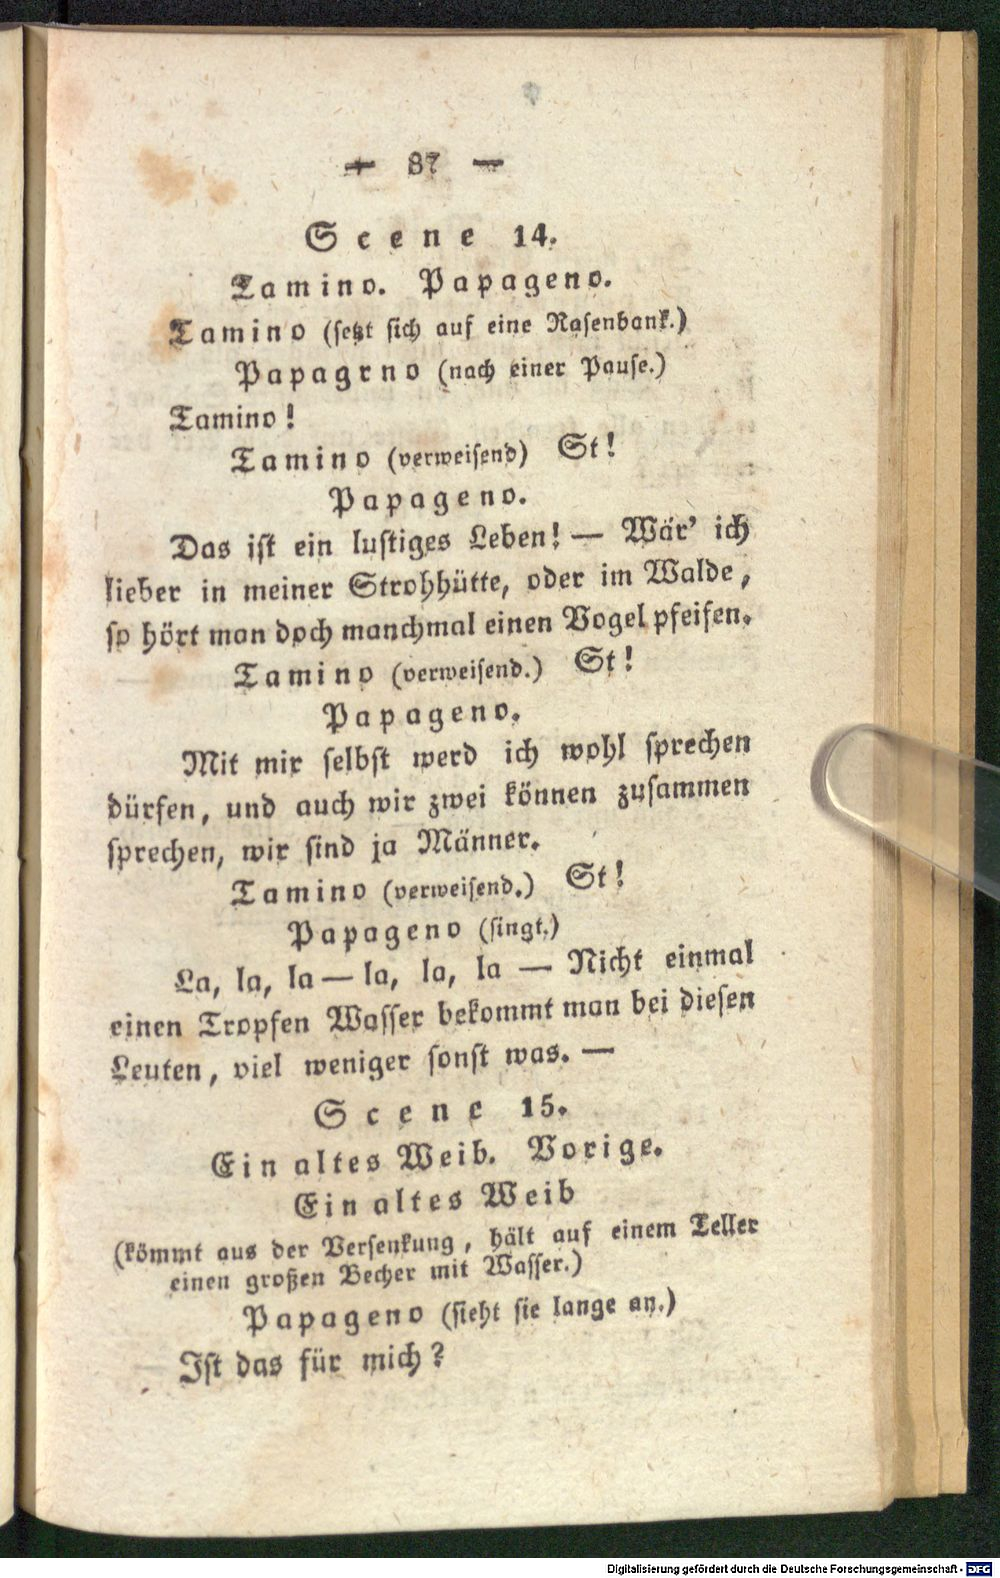 — 87 —
Scene 14.
Tamino. Papageno.
Tamino (setzt sich auf eine Rasenbank.)
Papagrno (nach einer Pause.)
Tamino!
Tamino (verweisend) St!
Papageno.
Das ist ein lustiges Leben! — Wär' ich
lieber in meiner Strohhütte, oder im Walde,
so hört man doch manchmal einen Vogel pfeifen.
Tamino (verweisend.) St!
Papageno.
Mit mir selbst werd ich wohl sprechen
dürfen, und auch wir zwei können zusammen
sprechen, wir sind ja Männer.
Tamino (verweisend.) St!
Papageno (singt.)
La, la, la — la, la, la — Nicht einmal
einen Tropfen Wasser bekommt man bei diesen
Leuten, viel weniger sonst was. —
Scene 15.
Ein altes Weib. Vorige.
Ein altes Weib
(kömmt aus der Versenkung, hält auf einem Teller
einen großen Becher mit Wasser.)
Papageno (sieht sie lange an.)
Ist das für mich?
Digitalisierung gefördert durch die Deutsche Forschungsgemeinschaft - DFG